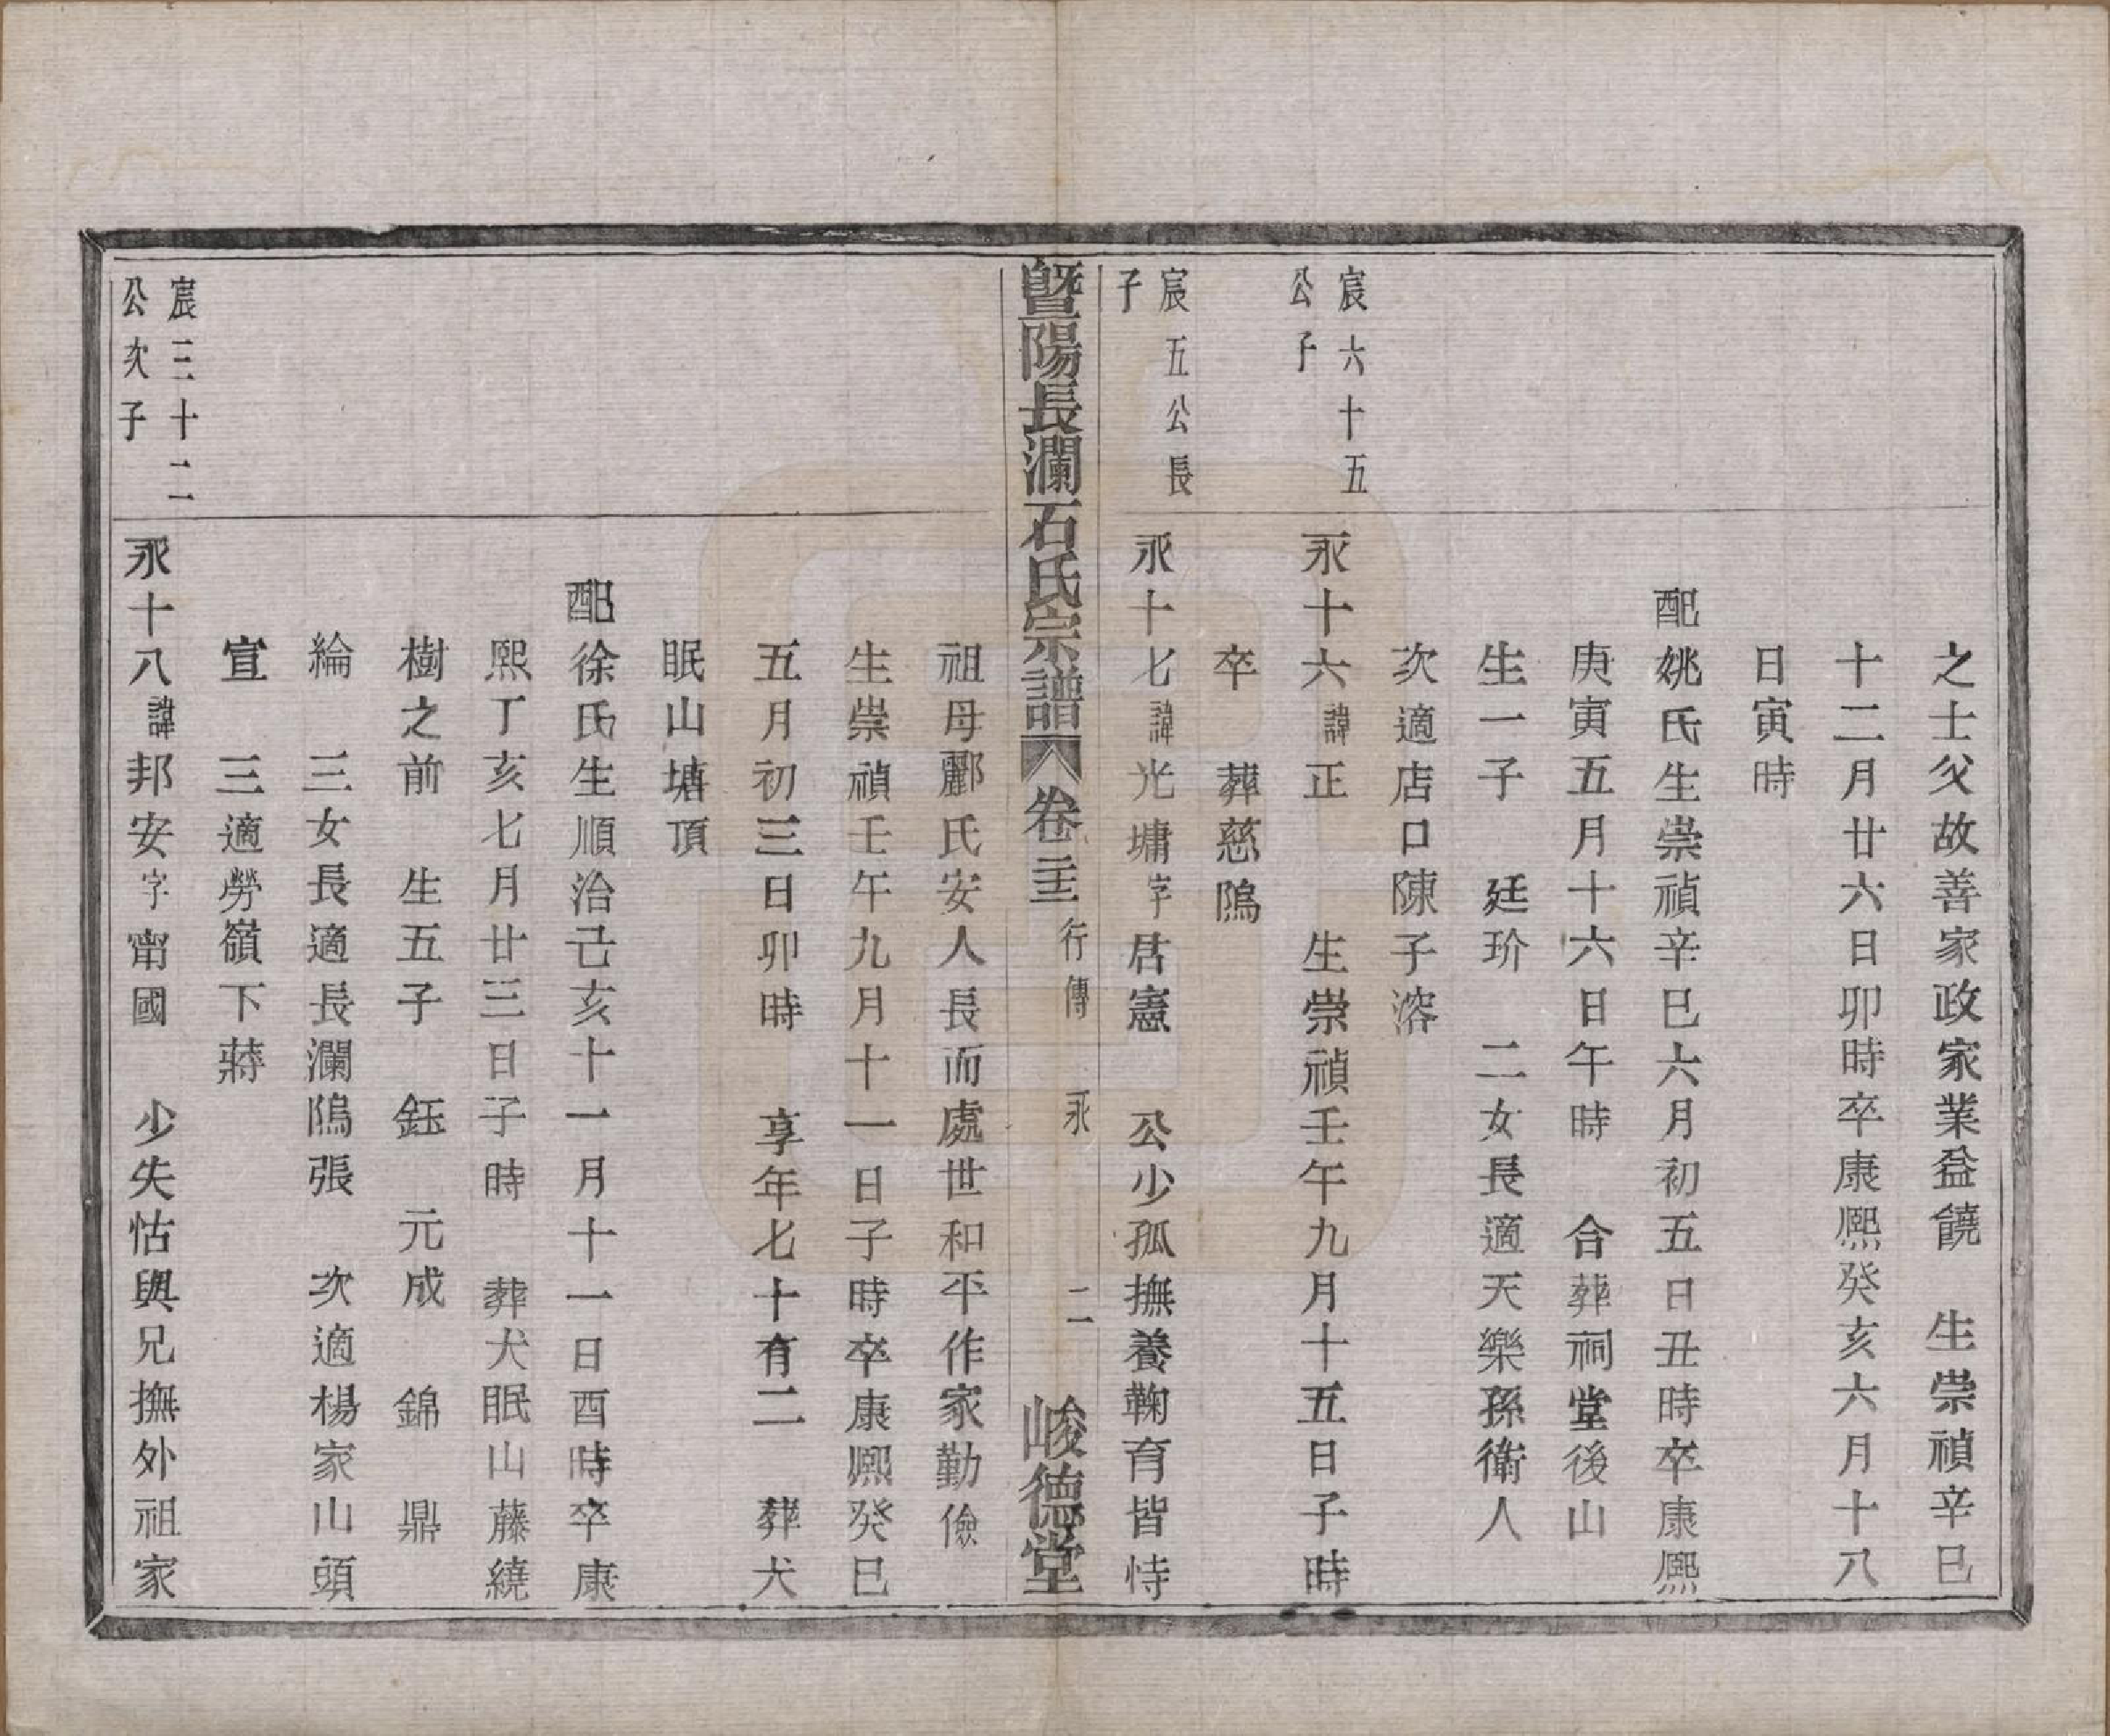 之士父故善家政家業益饒　生崇禎辛巳
十二月廿六日卯時卒康熙癸亥六月十八
日寅時
配姚氏生崇禎辛巳六月初五日丑時卒康熙
庚寅五月十六日午時　合葬祠堂後山
生一子　廷玠　二女長適天樂孫衛人
次適店口陳子溶
宸六十五
公子
永十六諱正　生崇禎壬午九月十五日子時
卒　葬慈隖
宸五公長
子
永十七諱光墉字君憲　公少孤撫養鞠育皆恃
暨陽長瀾石氏宗譜　卷二十三　行傳　永　二　峻德堂
祖母酈氏安人長而處世和平作家勤儉
生崇禎壬午九月十一日子時卒康熙癸巳
五月初三日卯時　享年七十有二　葬犬
眠山塘頂
配徐氏生順治己亥十一月十一日酉時卒康
熙丁亥七月廿三日子時　葬犬眠山藤繞
樹之前　生五子　鈺　元成　錦　鼎
綸　三女長適長瀾隖張　次適楊家山頭
宣　三適勞嶺下蔣
宸三十二
公次子
永十八諱邦安字甯國　少失怙與兄撫外祖家